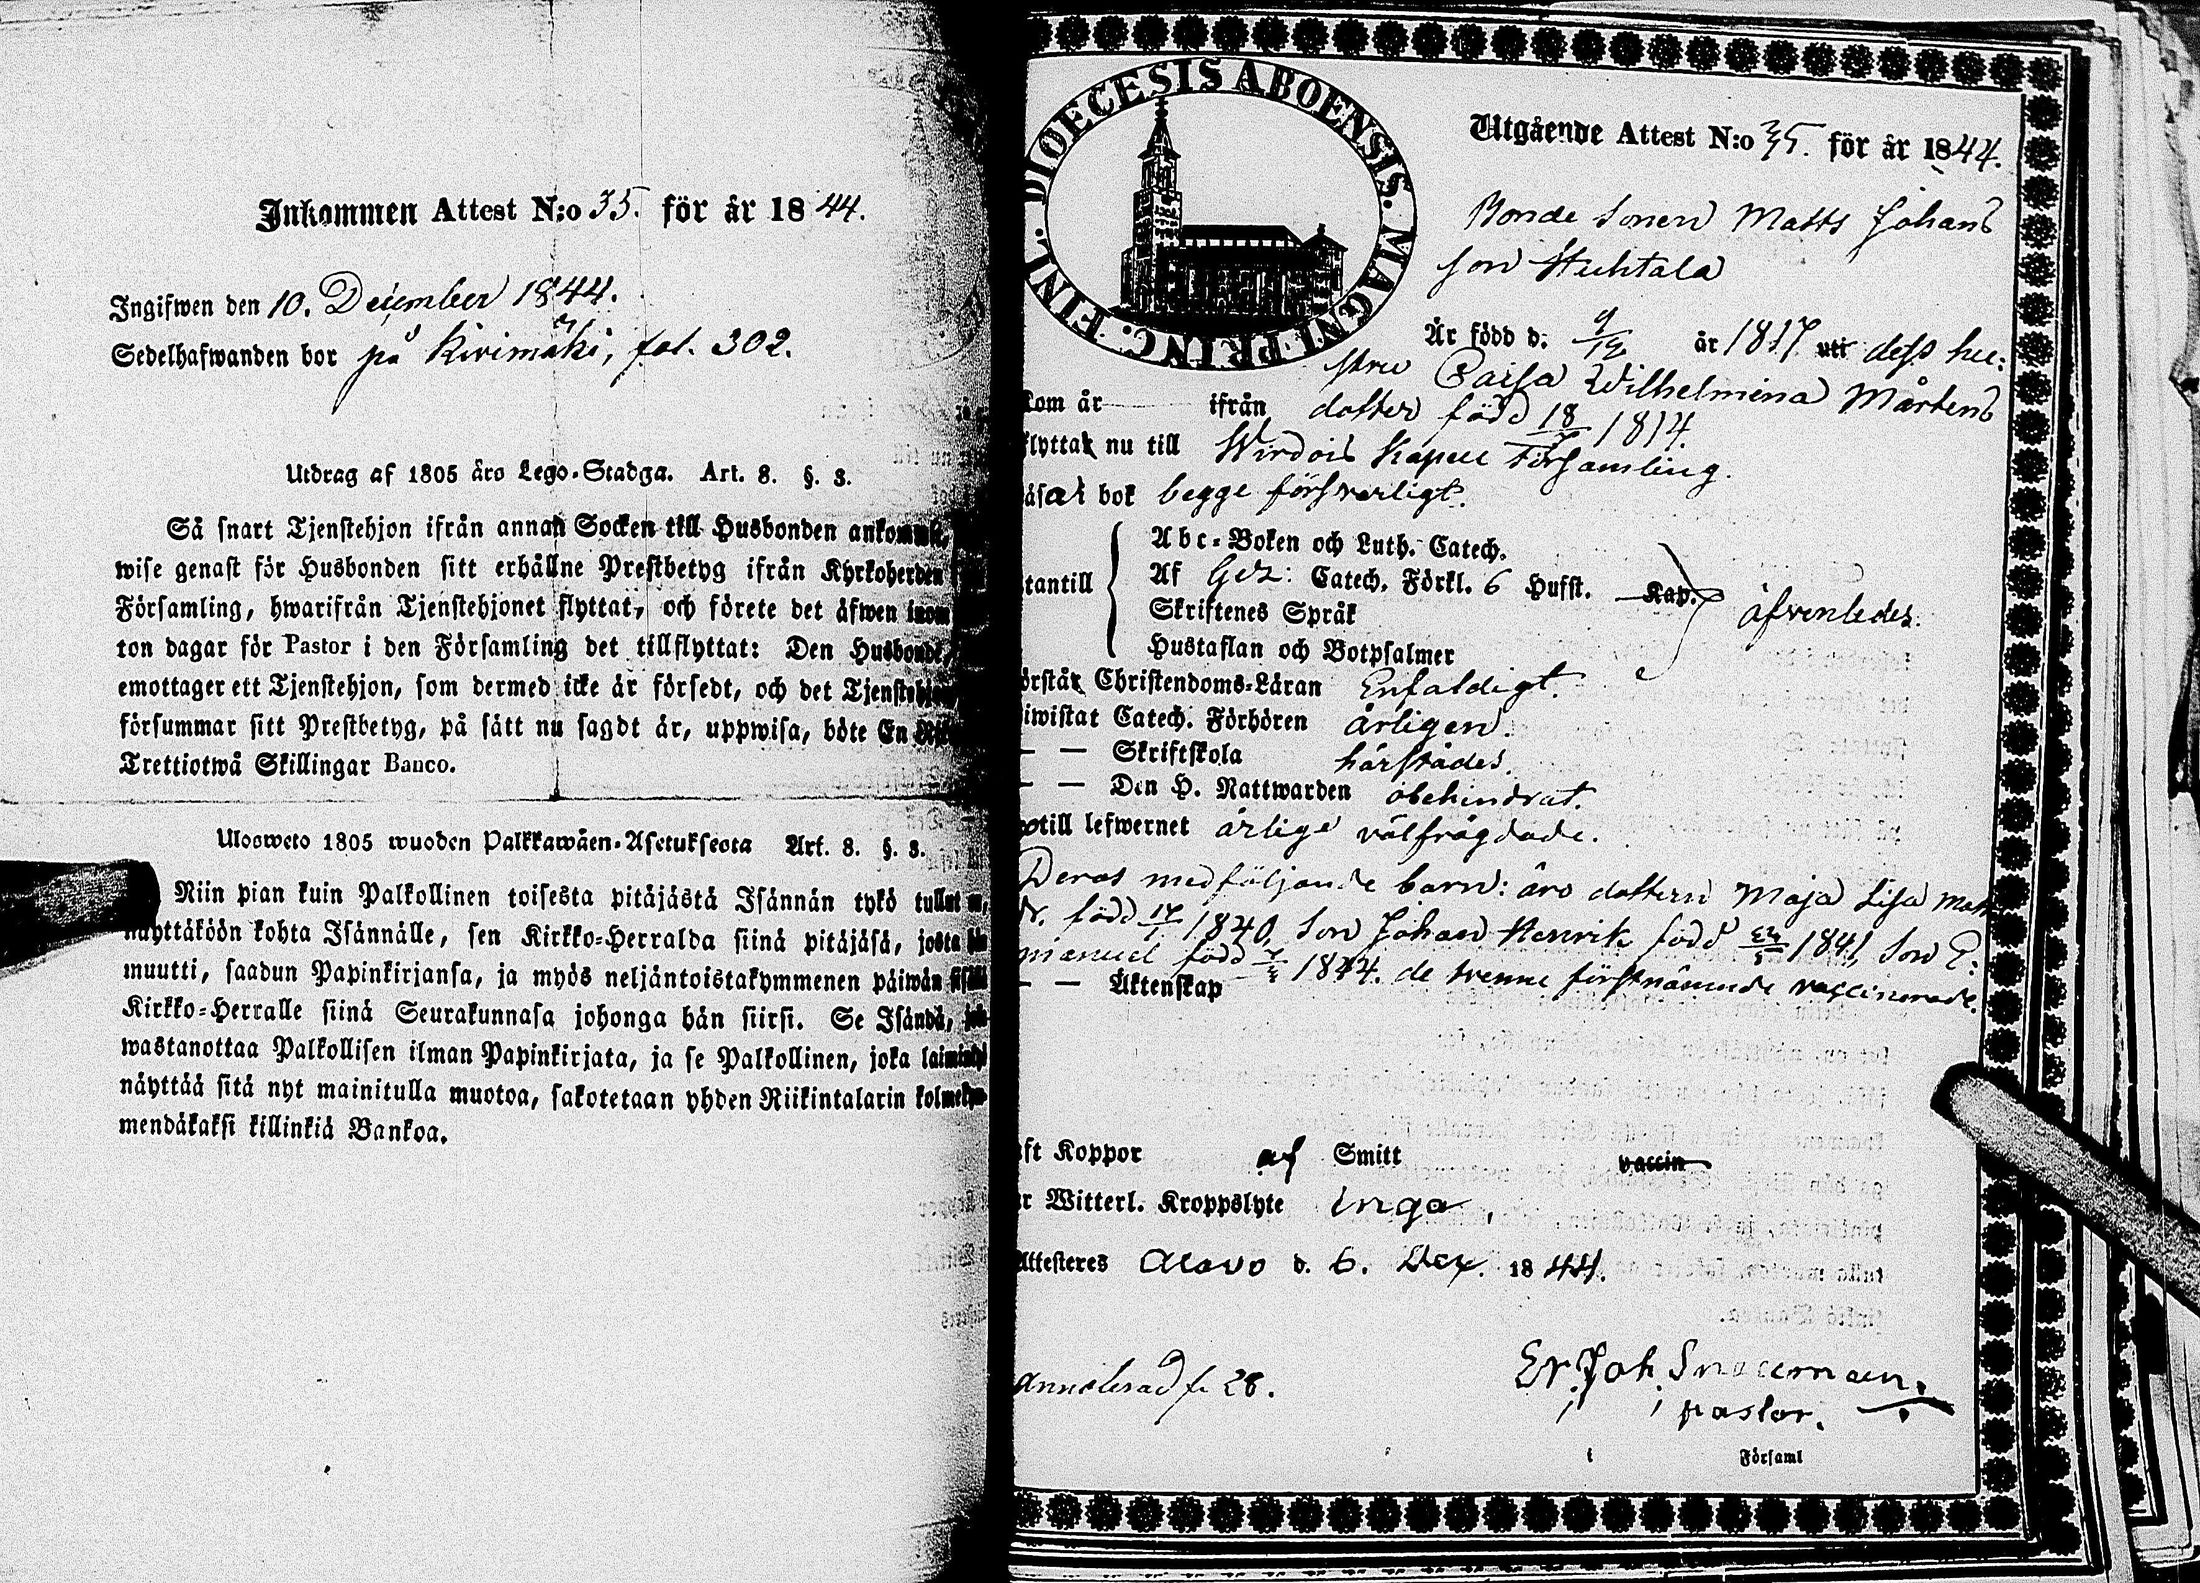 Inkommen Attest N:o 35. för år 1844.
Ingifwen den 10. December 1844.
Sedelhafwanden bor på Kivimäki, fol. 302.
Utdrag af 1805 års Lego-Stadga. Art. 8. §. 3.
Så snart Tjenstehjon ifrån annan Socken till Husbonden ankommit,
wise genast för Husbonden sitt erhållne Prestbetyg ifrån Kyrkoherden
Församling, hwarifrån Tjenstehjonet flyttat, och förete det äfwen inom
ton dagar för Pastor i den Församling det tillflyttat: Den Husbonde,
emottager ett Tjenstehjon, som dermed icke är försedt, och det Tjenstehjon
försummar sitt Prestbetyg, på sätt nu sagdt är, uppwisa, böte En
Trettiotwå Skillingar Banco.
Ulosweto 1805 wuoden Palkkawäen-Asetuksesta Art. 8. §. 3.
Niin pian kuin Palkollinen toisesta pitäjästä Isännän tykö tullut
näyttäköön kohta Isännälle, sen Kirkko-Herralda siinä pitäjäsä, josta hän
muutti, saadun Papinkirjansa, ja myös neljäntoistakymmenen päiwän sisällä
Kirkko-Herralle siinä Seurakunnasa johonga hän siirsi. Se Isändä,
wastanottaa Palkollisen ilman Papinkirjata, ja se Palkollinen, joka laiminlyö
näyttää sitä nyt mainitulla muotoa, sakotetaan yhden Riikintalarin kolmekym
mendäkaksi killinkiä Bankoa.
FINL. DIOECESIS ABOENSIS. MAGNI PRINC.
Utgående Attest N:o 35. för år 1844.
Bonde sonen Matts Johans
son Huhtala
Är född d. 9/12 år 1817 uti dess hu:
stru Caisa Wilhelmina Mårtens
kom år ifrån dotter född 18/7 1814.
flyttar nu till Wirdois Kapell Församling.
läsa i bok begge försvarligt.
Abc-Boken och Luth. Catech.
utantill Af Gez: Catech. Förkl. 6 Hufst. Kap. äfvenledes.
Skriftenes Språk
Hustaflan och Botpsalmer
örstår Christendoms-Läran Enfaldigt.
iwistat Catech. Förhören årligen.
— — Skriftskola härstädes.
— — Den H. Nattwarden obehindrat.
till lefwernet ärlige välfrägdade.
Deras medföljande barn: äro dottern Maja Lisa Matts
dr. född 17/1 1840, son Johan Henrik född 23/5 1841, son E:
manuel född 1844. de trenne förstnämnde vaccinerade.
— — Äktenskap
aft Koppor af Smitt vaccin
r Witterl. Kroppslyte inga,
Attesteres Alavo d. 6. Dec. 1844.
Annoterad f. 28.
Er. Joh. Snellman.
pastor.
i Församl